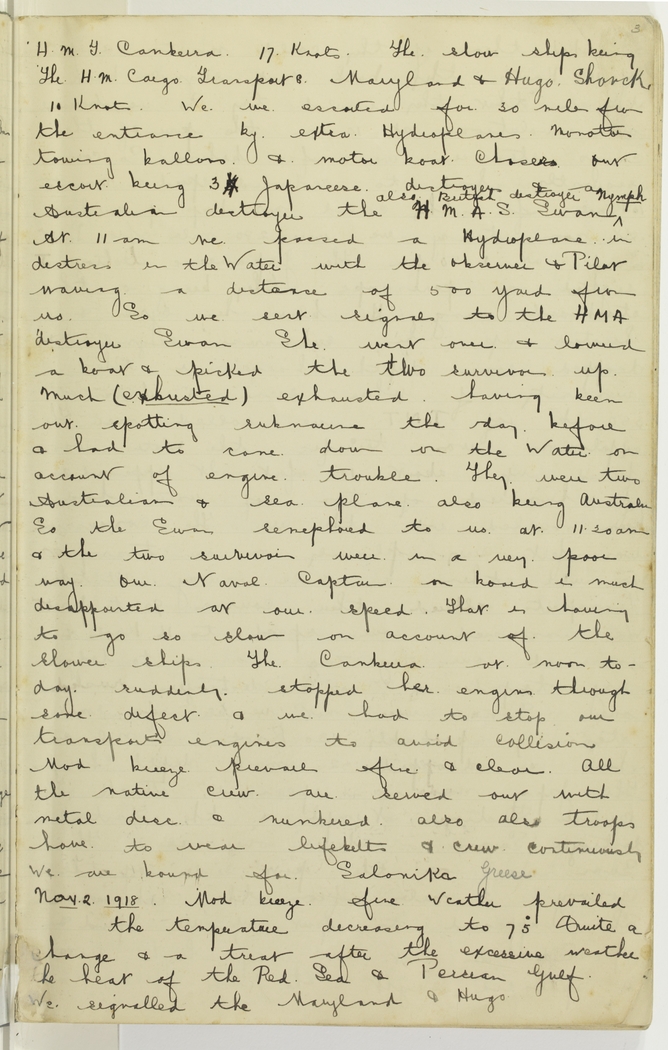 3
H.M.T. Canberra. 17. Knots. The. slow ships being
The. H.M. Cargo. Transports. Maryland & Hugo. Shonck.
10 Knots. We. we. escorted for. 30 miles from
the entrance by. extra. Hydroplanes. Monotors
towing ballons. & motor boat. Chasers. our
escort being 3 Japaneese. destroyers & a
also British destroyer Nymph
Australian destroyer the H.M.A.S. Swan ^
At. 11 am we. passed a Hydroplane. in
distress in the Water with the observer & Pilot
waving. a distance of 500 yards from
us. So we sent signals to the HMA
destroyer Swan She. went over. & lowered
a boat & picked the two survivors up.
Much (exhusted) exhausted. having been
out. spotting submarine the day. before
& had to come down on the Water on
account of engine. trouble. They were two
Australians & sea plane. also being Australian
So the Swan semephored to us. at. 11.20am
& the two survivors were. in a very. poor
way. Our. Naval. Captain. on board is much
disappointed at our. speed. That is having
to go so slow on account of. the
slower ships. The. Canberra. at. noon to-
day. suddenly. stopped her. engines through
some. defect. & we. had to stop our
transports engines to avoid collision
Mod breeze prevails fine & clear. All
the native crew. are. served out with
metal disc. & numbered. also troops
have. to wear lifebelts & crew. continuously
We are bound for. Salonika Greese
Nov. 2. 1918. Mod breeze. fine Weather prevailed
the temperature decreasing to 75 Quite a
change & a treat after the excessive weather
he heat of the Red. Sea & Persian Gulf.
We. signalled the Maryland & Hugo